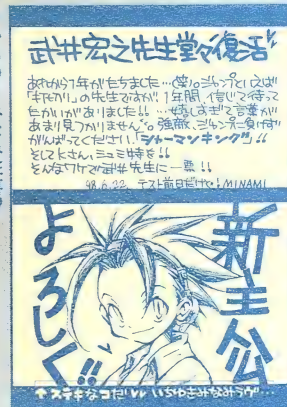 武井宏之先生堂々復活
あれから1年がたちました…(笑)。ジャンプといえば
の先生ですが、1年間、信じて待って
たかいがありました!!…嬉しすぎて言葉が
あまり見つかりません。強敵、ジャンプに負けず
がんばってください!「シャーマンキング」!!
そしてkさん、ニュミ特を!!
そんなワケで武井先生に一票!!
98.6.22. テスト前日だけど! MINAMI
新主公
よろしく!!
↑ステキなコだい